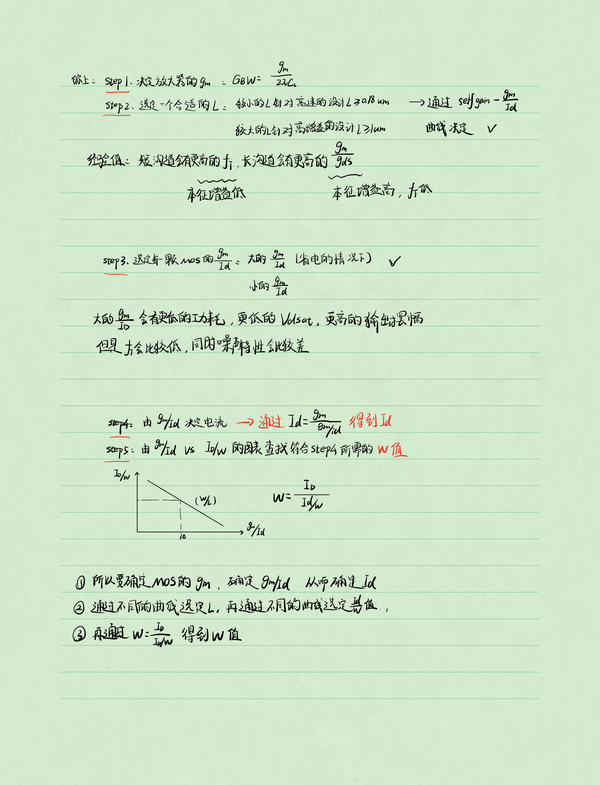 综上: Step 1. 决定放大器的gm : GBW = gm/2πCL
Step 2. 选定一个合适的L: 较小的L针对高速的设计 L≥0.18um → 通过 self gain - gm/Id
较大的L针对高增益的设计 L≥1um 曲线决定 ✓
经验值: 短沟道会有更高的fT, 长沟道会有更高的 gm/gds
本征增益低 本征增益高, fT低
step3. 选定每一颗MOS的 gm/Id : 大的 gm/Id (省电的情况下) ✓
小的 gm/Id
大的 gm/ID 会有更低的功耗, 更低的Vdsat, 更高的输出摆幅
但是 fT会比较低, 同时噪声特性会比较差
step4: 由 gm/id 决定电流 → 通过 Id = gm/gm/id 得到Id
step5: 由 gm/Id vs ID/W 的图表查找符合step4所需的W值
ID/W
(W/L)
W = ID/Id/W
10
gm/Id
① 所以要确定MOS的gm, 确定gm/id 从而确定Id
② 通过不同的曲线选定L, 再通过不同的曲线选定 值,
③ 再通过 W = ID/ID/W 得到W值